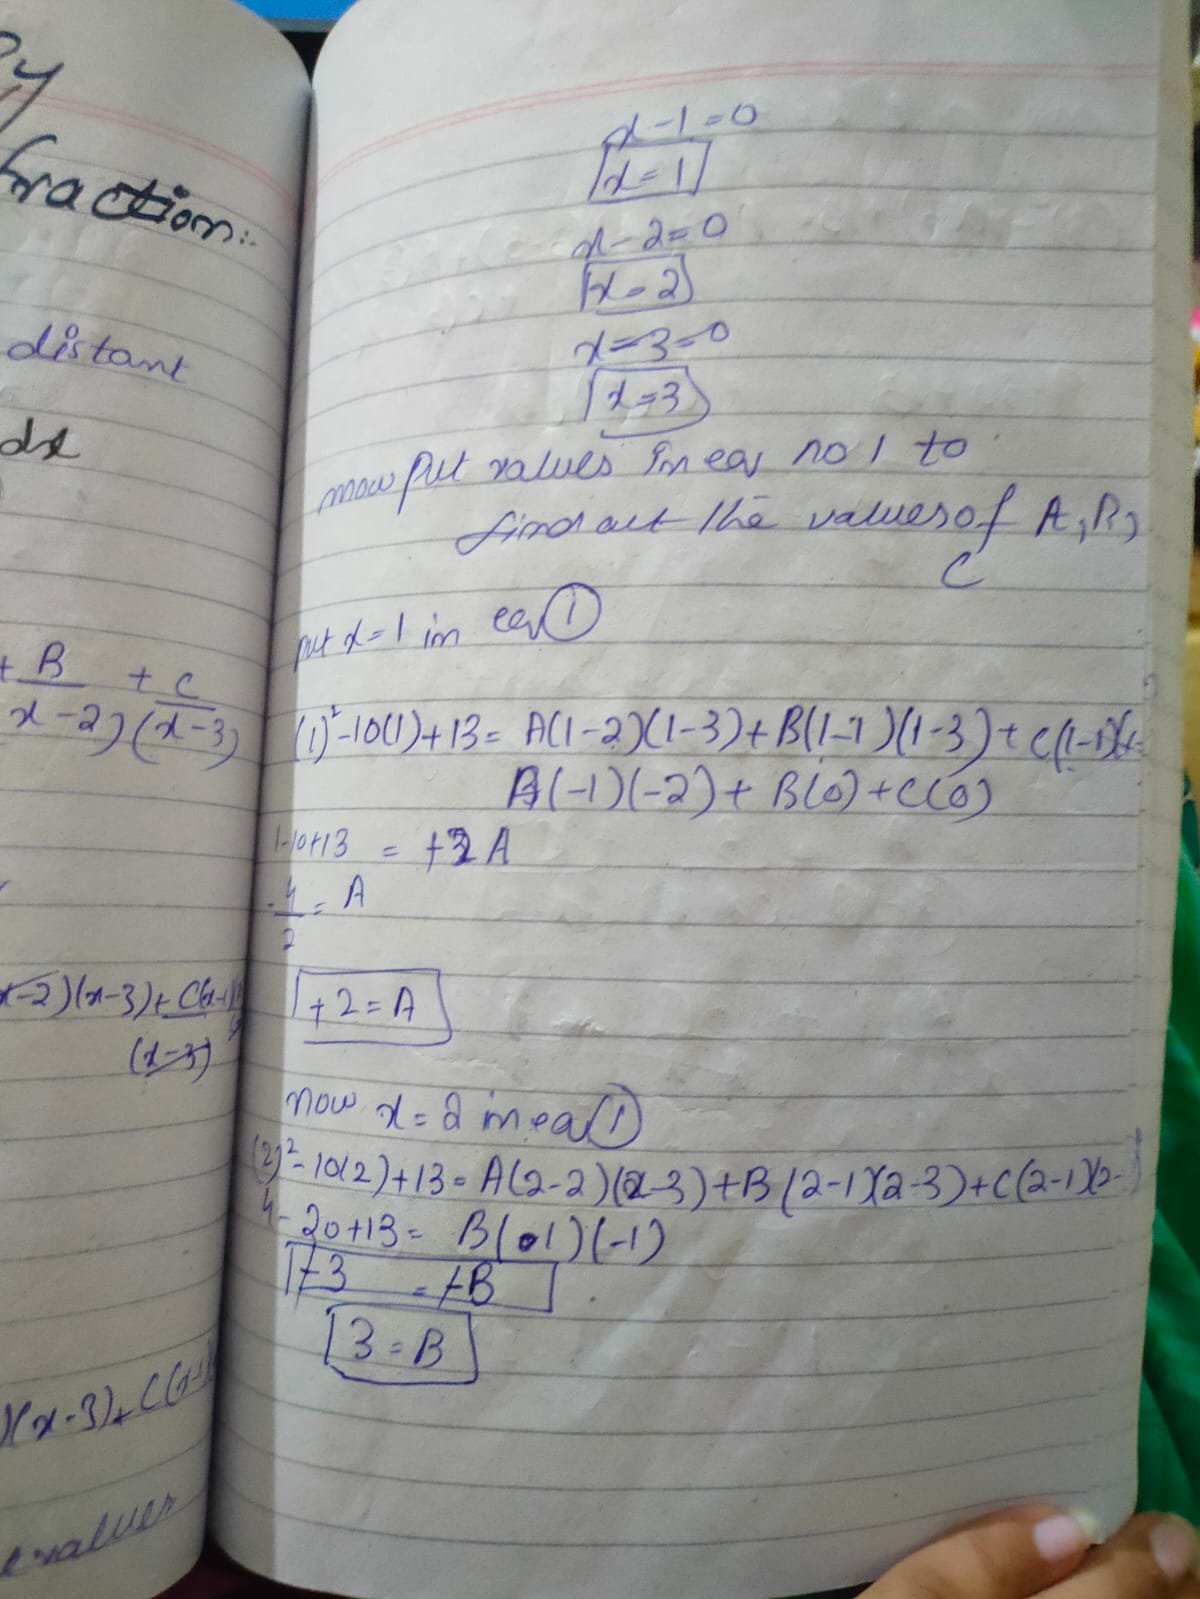 fraction:-
distant
dx
+ B + C
x-2) (x-3)
x-2)(x-3)+ C(x-1)
(x-3)
)(x-3)+ C(x-1)
values
x-1=0
x=1
x-2=0
x=2
x-3=0
x=3
now Put values in eq no 1 to
find out the values of A, B,
C
put x=1 in eq ①
(1)²-10(1)+13= A(1-2)(1-3)+B(1-1)(1-3)+C(1-1)(
A(-1)(-2)+ B(0)+C(0)
1-10+13 = +2A
4/2 = A
+2=A
now x=2 in eq ①
(2)²-10(2)+13=A(2-2)(2-3)+B(2-1)(2-3)+C(2-1)(2-
4-20+13= B(1)(-1)
+3 = +B
3=B